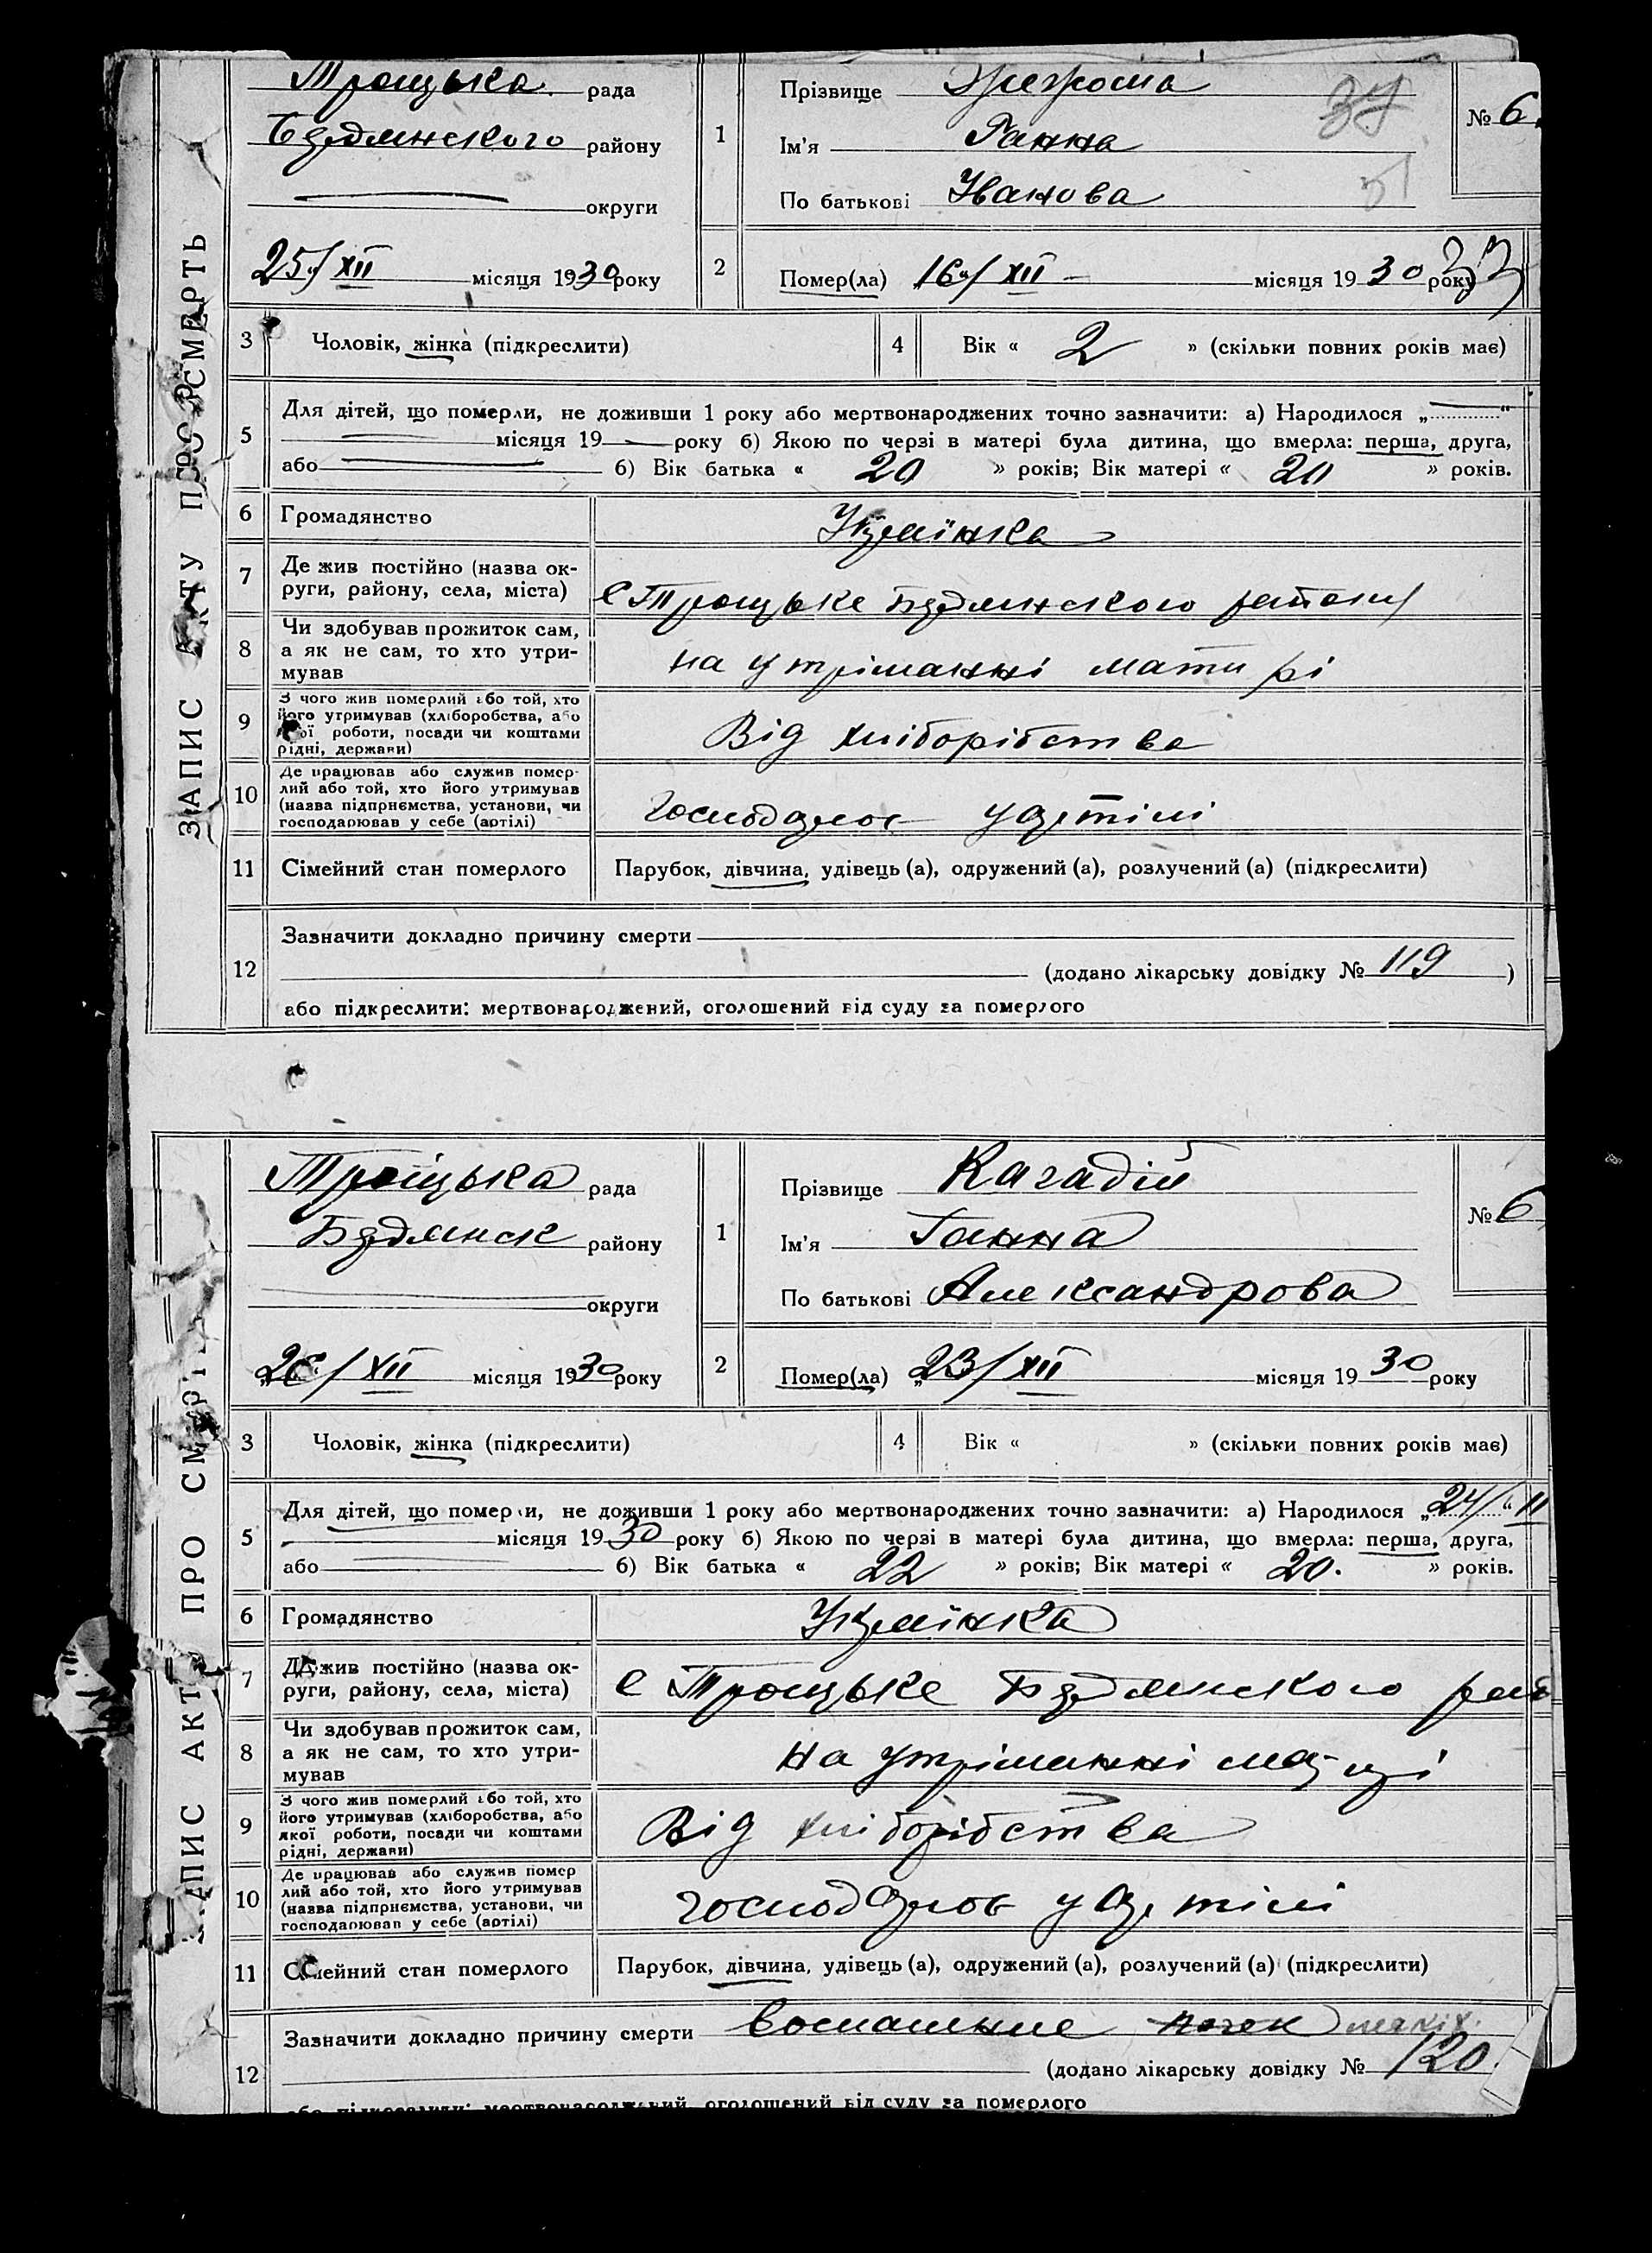 ЗАПИС АКТУ ПРО СМЕРТЬ
Троцька рада
Бердянского району
округи
25/XII місяця 1930 року
1
Прізвище
Ім'я Ганна
По батькові Іванова
№ 6
2
Помер(ла) 16/XII місяця 1930 року
33
3 Чоловік, жінка (підкреслити)
4 Вік « 2 » (скільки повних років має)
5 Для дітей, що померли, не доживши 1 року або мертвонароджених точно зазначити: а) Народилося „
місяця 19 року б) Якою по черзі в матері була дитина, що вмерла: перша, друга,
або б) Вік батька « 20 » років; Вік матері « 20 » років.
6 Громадянство Украінка
7 Де жив постійно (назва ок-
руги, району, села, міста) с Троцьке Бердянского району
8 Чи здобував прожиток сам,
а як не сам, то хто утри-
мував на утріманні матирі
9 З чого жив померлий або той, хто
його утримував (хліборобства, або
якої роботи, посади чи коштами
рідні, держави) Від хліборібства
10 Де працював або служив помер-
лий або той, хто його утримував
(назва підприємства, установи, чи
господарював у себе (артілі) господарює у артілі
11 Сімейний стан померлого Парубок, дівчина, удівець (а), одружений (а), розлучений (а) (підкреслити)
12 Зазначити докладно причину смерти
(додано лікарську довідку № 119 )
або підкреслити: мертвонароджений, оголошений від суду за померлого
ЗАПИС АКТУ ПРО СМЕРТЬ
Троїцька рада
Бердянск району
округи
26/XII місяця 1930 року
1
Прізвище Кагадій
Ім'я Ганна
По батькові Александрова
№ 6
2
Помер(ла) 23/XII місяця 1930 року
3 Чоловік, жінка (підкреслити)
4 Вік « » (скільки повних років має)
5 Для дітей, що померли, не доживши 1 року або мертвонароджених точно зазначити: а) Народилося „24/“ 11
місяця 1930 року б) Якою по черзі в матері була дитина, що вмерла: перша, друга,
або б) Вік батька « 22 » років; Вік матері « 20. » років.
6 Громадянство Укрaінка
7 Де жив постійно (назва ок-
руги, району, села, міста) с Троцьке Бердянского рай
8 Чи здобував прожиток сам,
а як не сам, то хто утри-
мував на утріманні
9 З чого жив померлий або той, хто
його утримував (хліборобства, або
якої роботи, посади чи коштами
рідні, держави) Від хліборібства
10 Де працював або служив помер
лий або той, хто його утримував
(назва підприємства, установи, чи
господарював у себе (артілі) господарює у артілі
11 Сімейний стан померлого Парубок, дівчина, удівець (а), одружений (а), розлучений (а) (підкреслити)
12 Зазначити докладно причину смерти воспаление почек легких.
(додано лікарську довідку № 120.
або підкреслити: мертвонароджений, оголошений від суду за померлого